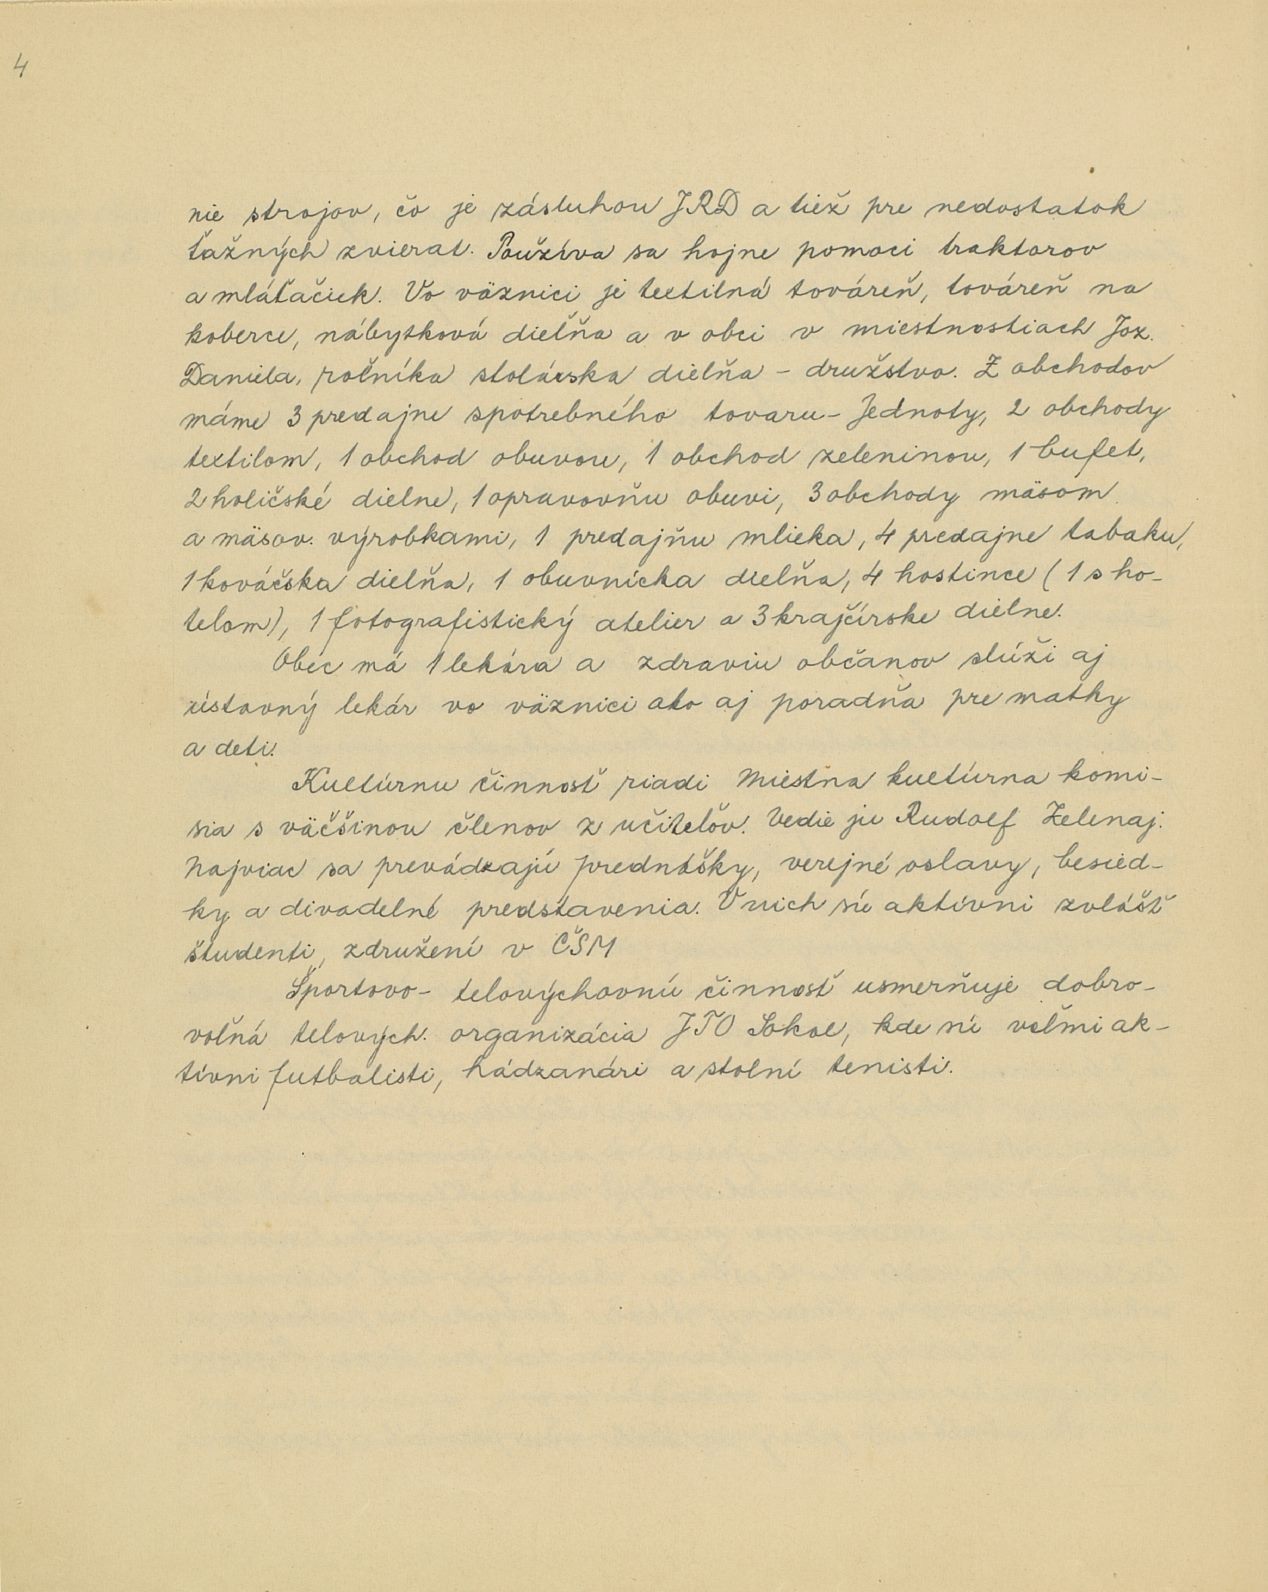 4
nie strojov, čo je zásluhou JRD a tiež pre nedostatok
ťažných zvierat. Používa sa hojne pomoci traktorov
a mláťačiek. Vo väznici je textilná továreň, továreň na
koberce, nábytková dielňa a v obci v miestnostiach Joz.
Daniela, roľníka stolárska dielňa - družstvo. Z obchodov
máme 3 predajne spotrebného tovaru - Jednoty, 2 obchody
textilom, 1 obchod obuvou, 1 obchod zeleninou, 1 bufet,
2 holičské dielne, 1 opravovňu obuvi, 3 obchody mäsom
a mäsov. výrobkami, 1 predajňu mlieka, 4 predajne tabaku,
1 kováčska dielňa, 1 obuvnícka dielňa, 4 hostince (1 s ho-
telom), 1 fotografistický atelier a 3 krajčírske dielne.
Obec má 1 lekára a zdraviu občanov slúži aj
ústavný lekár vo väznici ako aj poradňa pre matky
a deti.
Kultúrnu činnosť riadi Miestna kultúrna komi-
sia s väčšinou členov z učiteľov. Vedie ju Rudolf Zelenaj.
Najviac sa prevádzajú prednášky, verejné oslavy, besied-
ky a divadelné predstavenia. V nich sú aktívni zvlášť
študenti, združení v ČSM
Športovo- telovýchovnú činnosť usmerňuje dobro-
voľná telových. organizácia JTO Sokol, kde sú veľmi ak-
tívni futbalisti, hádzanári a stolní tenisti.